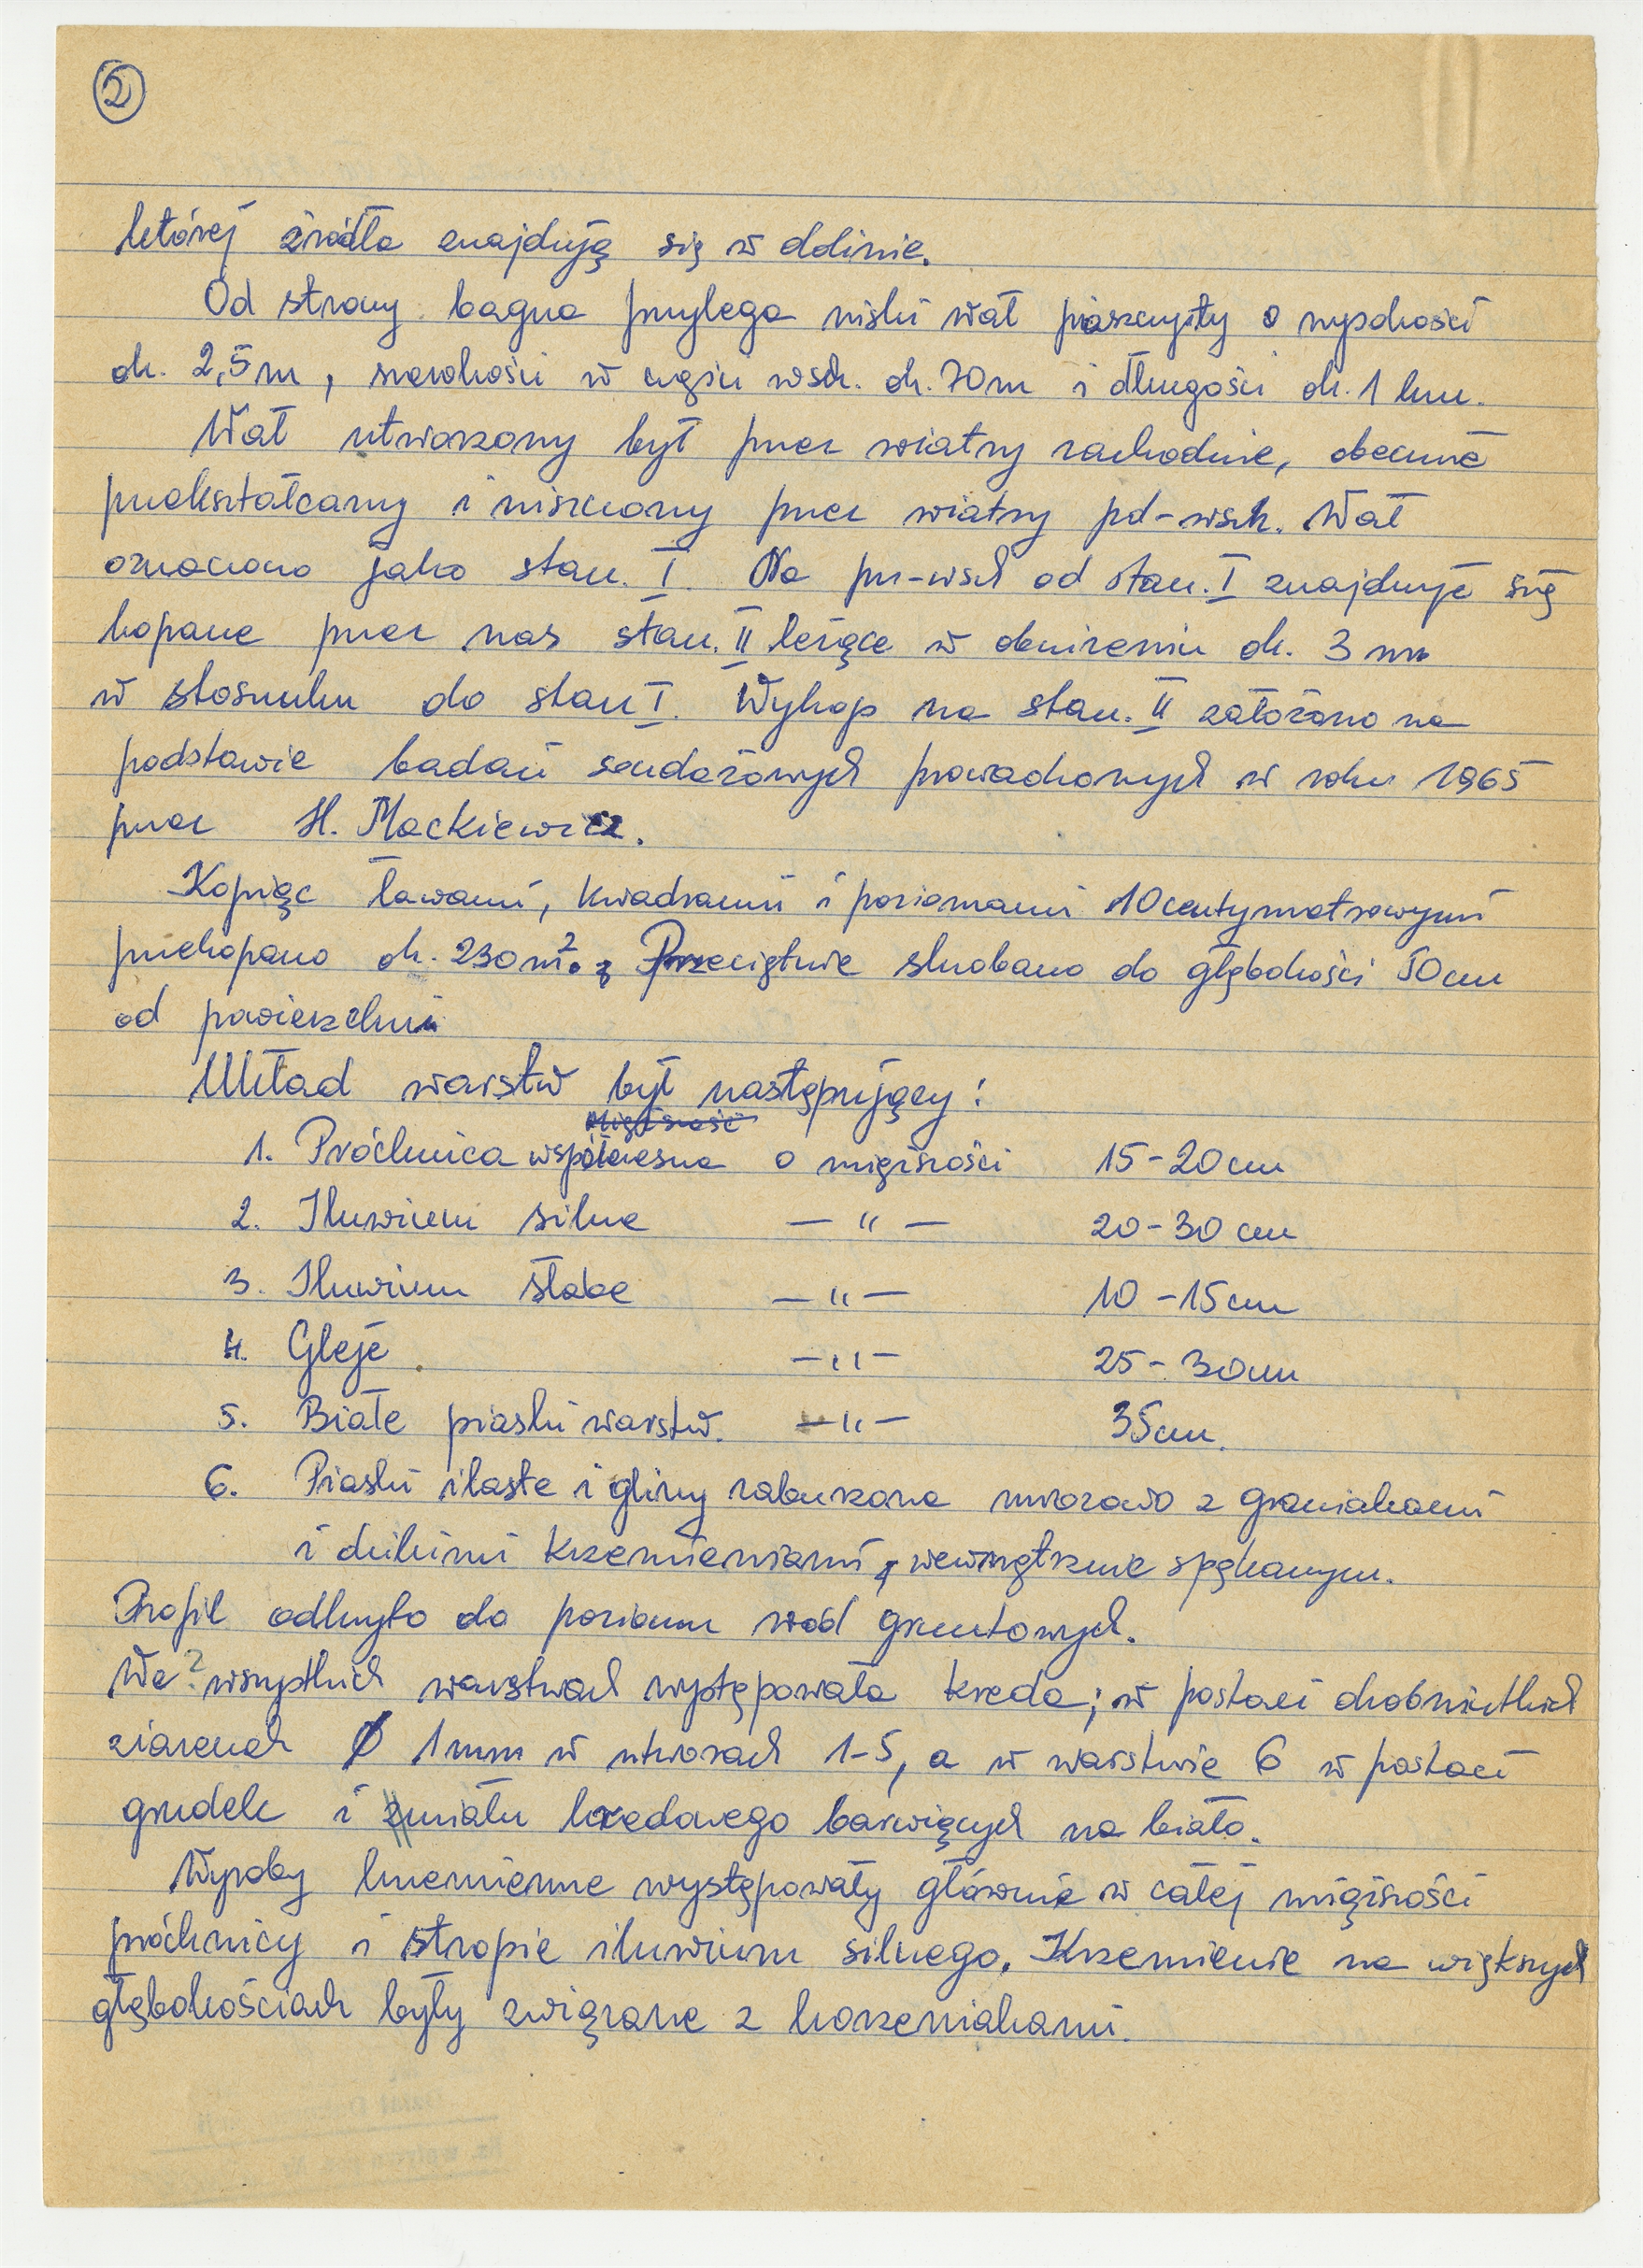 2
której źródła znajdują się w dolinie.
Od strony bagna przylega niski wał piaszczysty o wysokości
ok. 2,5 m, szerokości w części wsch. ok. 70 m i długości ok. 1 km.
Wał utworzony był przez wiatry zachodnie, obecnie
przekształcany i niszczony przez wiatry pd-wsch. Wał
oznaczono jako stan. I. Na pn-wsch od stan. I znajduje się
kopane przez nas stan. II leżące w obniżeniu ok. 3 m
w stosunku do stan I. Wykop na stan. II założono na
podstawie badań sondażowych prowadzonych w roku 1965
przez H. Mackiewicz.
Kopiąc ławami, kwadrami i poziomami 10centymetrowymi
przekopano ok. 230 m². Przeciętnie skrobano do głębokości 50 cm
od powierzchni
Układ warstw był następujący:
miąższość
1. Próchnica współczesna o miąższości 15-20 cm
2. Iluwium silne — " — 20-30 cm
3. Iluwium słabe — " — 10-15 cm
4. Gleje — " — 25-30 cm
5. Białe piaski warstw. — " — 35 cm.
6. Piaski ilaste i gliny zaburzone mrozowo z graniakami
i dzikimi krzemieniami, wewnętrznie spękanym.
Profil odkryto do poziomu wód gruntowych.
We ? wszystkich warstwach występowała kreda; w postaci drobniutkich
ziarenek Ø 1 mm w utworach 1-5, a w warstwie 6 w postaci
grudek i zmiału kredowego barwiących na biało.
Wyroby krzemienne występowały głównie w całej miąższości
próchnicy i stropie iluwium silnego. Krzemienie na większych
głębokościach były związane z korzeniakami.